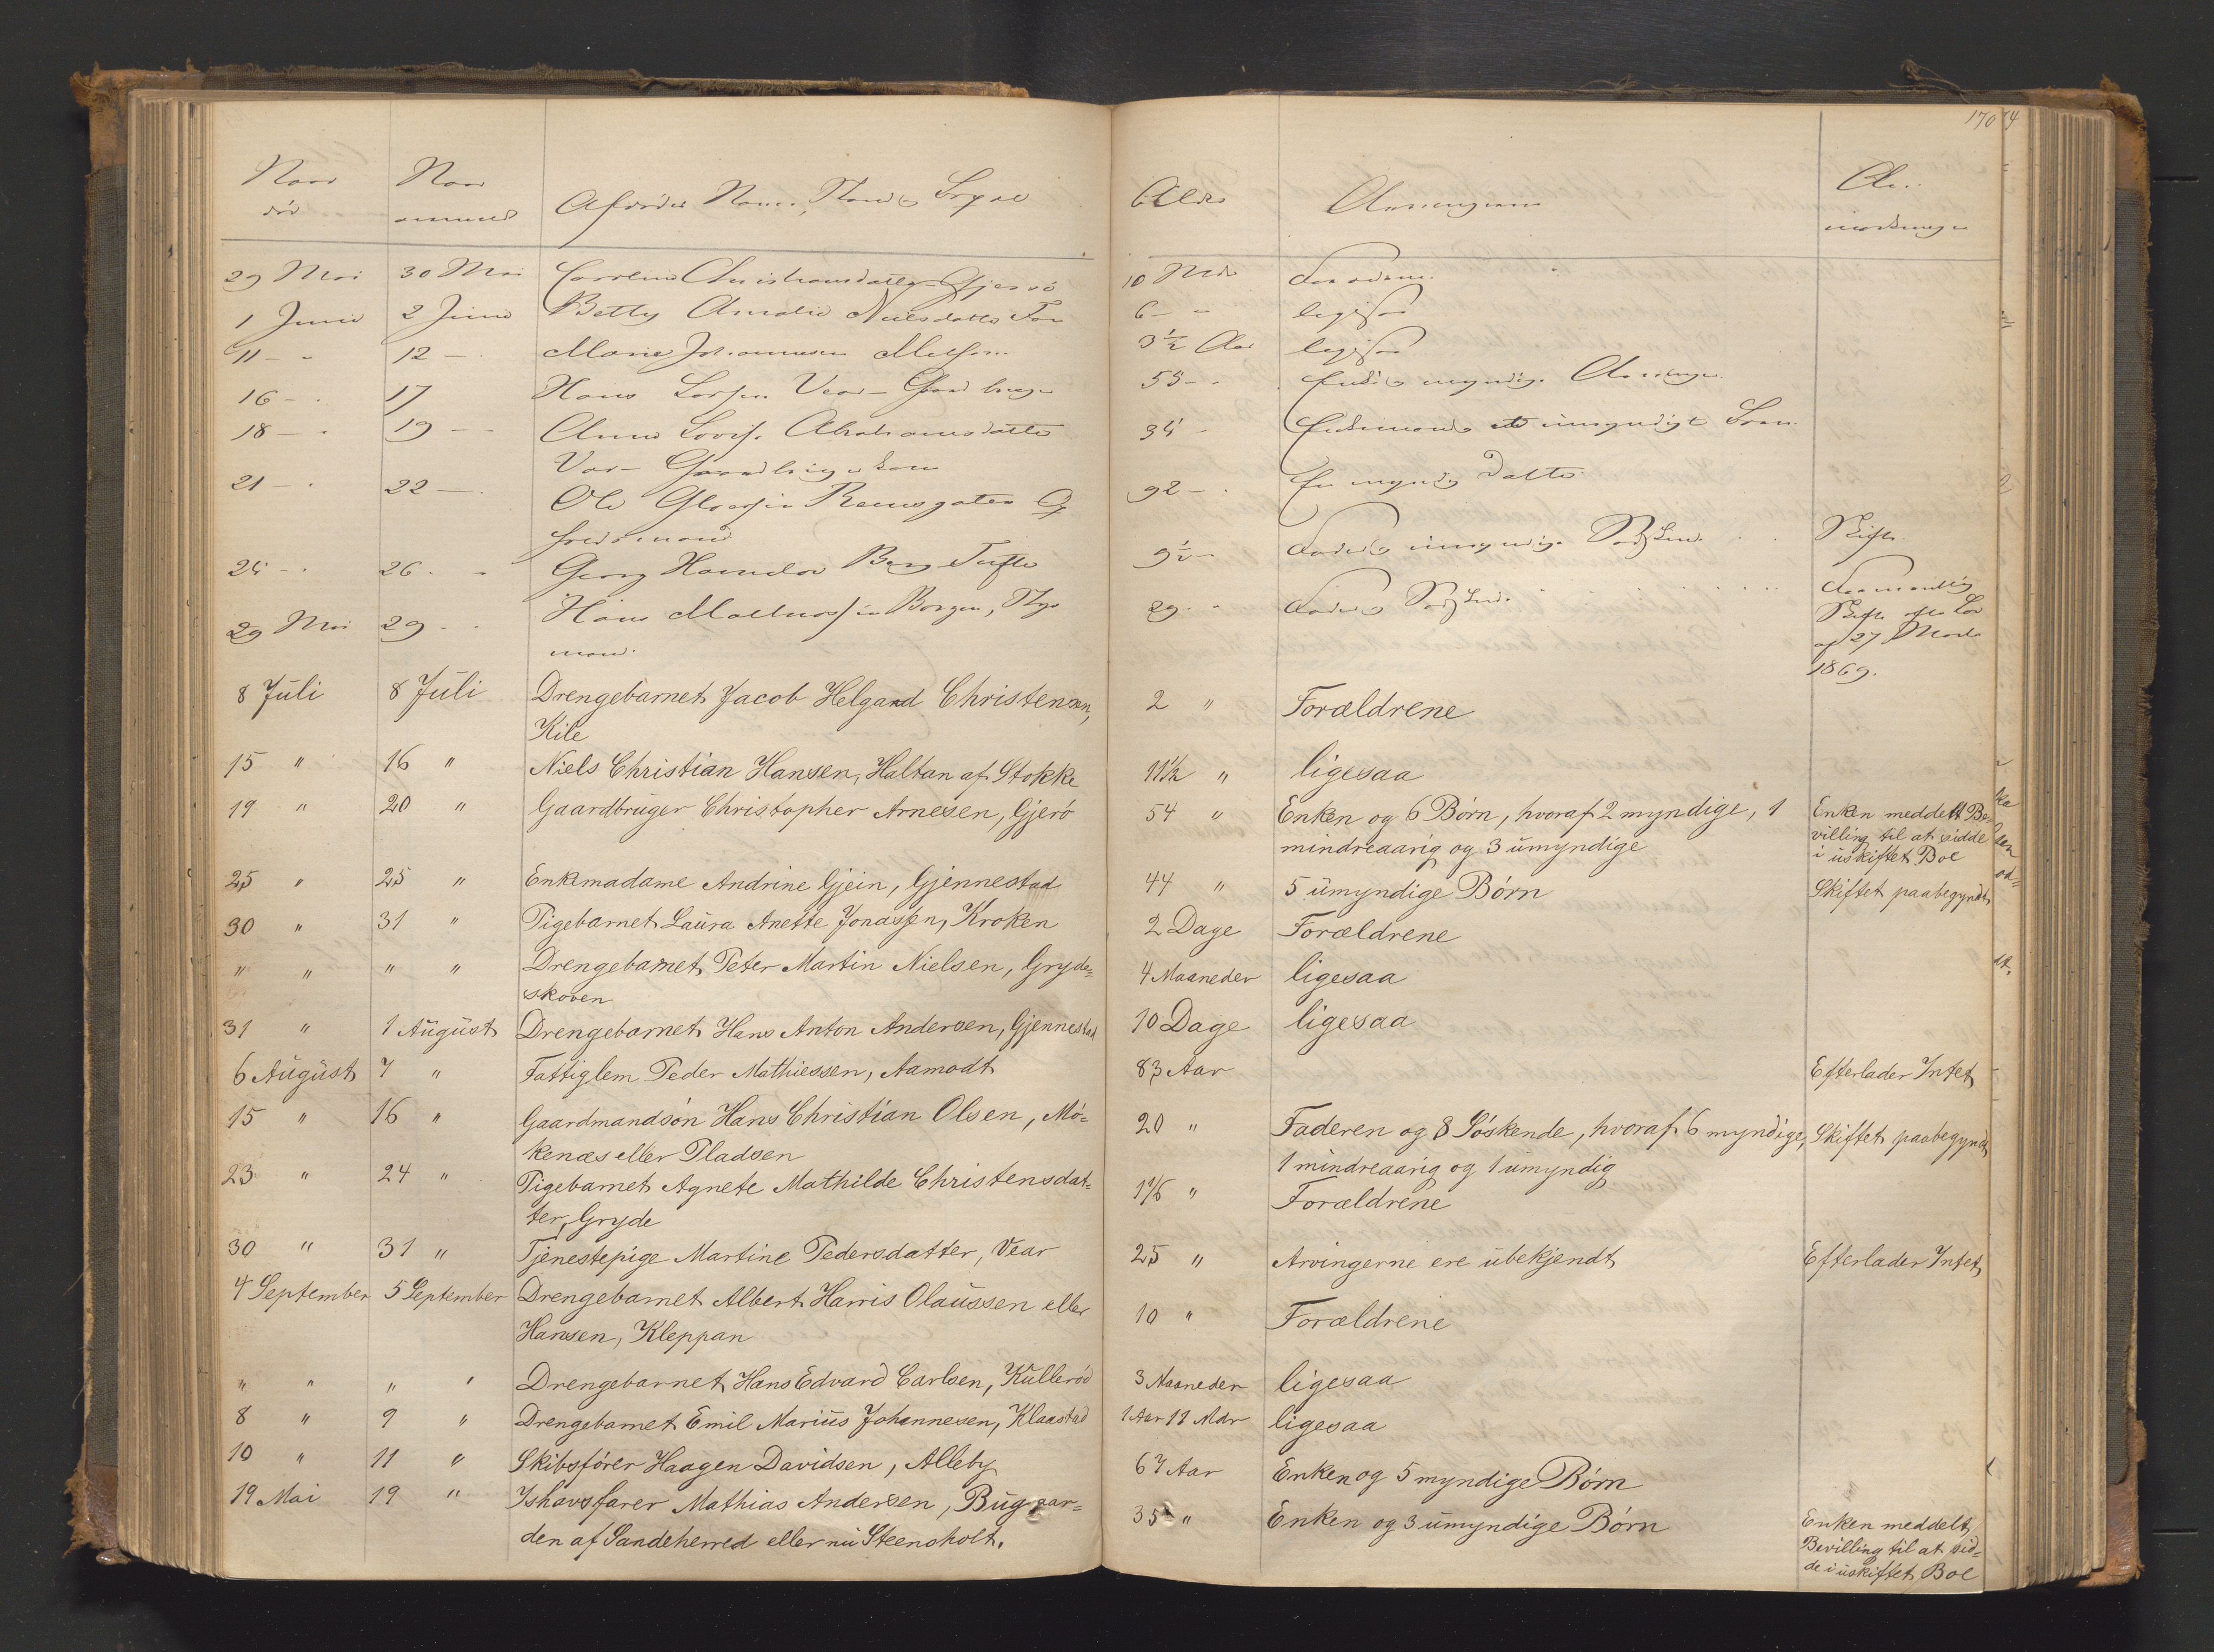 170
Naar Naar
død anmeldt Afdødes Navn, Stand og Bopæl Alder Arvingerne An-
mærkninger
29 Mai 30 Mai Christiansdatter Gjerø 10 Mdr Forældrene
1 Juni 2 Juni Betty Amalie Nielsdatter 6 - " ligesaa
11 - " 12 - Marie Johannesen Melsom 3½ Aar ligesaa
16 - . 17 Hans Larsen Vear - Gaardbruger 55 - . Enke og myndige Arvinger
18 - . 19 - - Anne Lovise Abrahamsdatter 34 - Enkemand og et umyndigt Barn
Vear - Gaardbrugerkone
21 - . 22 - . Ole Ramsgaten 92 - . En myndig Datter
24 - . 26 . - Georg Berg Tufte 9½ - Fader og umyndige Sødskende Skifte
29 Mai 29 . . Hans Borgen, 29 . " Fader og Sødskende
mand. Skifte
af 27 Marts
1869.
8 Juli 8 Juli Drengebarnet Jacob Helgand Christensen, 2 " Forældrene
Kile
15 " 16 " Niels Christian Hansen, Haltan af Stokke 11½ " ligesaa
19 " 20 " Gaardbruger Christopher Arnesen, Gjerö 54 " Enken og 6 Börn, hvoraf 2 myndige, 1 Enken meddelt Be-
mindreaarig og 3 umyndige villing til at sidde
i uskiftet Boe
25 " 25 " Enkemadame Andrine Gjein, Gjennestad 44 " 5 umyndige Börn Skiftet paabegyndt
30 " 31 " Pigebarnet Laura Anette Jonassen, Kroken 2 Dage Forældrene
" " " " Drengebarnet Peter Martin Nielsen, Gryde= 4 Maaneder ligesaa
skoven
31 " 1 August Drengebarnet Hans Anton Andersen, Gjennestad 10 Dage ligesaa
6 August 7 " Fattiglem Peder Mathiessen, Aamodt 83 Aar Efterlader Intet
15 " 16 " Gaardmandsön Hans Christian Olsen, Mö= 20 " Faderen og 8 Söskende, hvoraf 6 myndige, Skiftet paabegyndt
kenæs eller Pladsen 1 mindreaarig og 1 umyndig
23 " 24 " Pigebarnet Agnete Mathilde Christensdat= 1 1/6 " Forældrene
ter, Gryde
30 " 31 " Tjenestepige Martine Pedersdatter, Vear 25 " Arvingerne ere ubekjendt Efterlader Intet
4 September 5 September Drengebarnet Albert Harris Olaussen eller 10 " Forældrene
Hansen, Kleppan
" " " " Drengebarnet Hans Edvard Carlsen, Kulleröd 3 Maaneder ligesaa
8 " 9 " Drengebarnet Emil Marius Johannesen, Klaastad 1 Aar 11 Mdr ligesaa
10 " 11 " Skibsförer Haagen Davidsen, Alleby 67 Aar Enken og 5 myndige Börn
19 Mai 19 " Ishavsfarer Mathias Andersen, Bugaar= 35 " Enken og 3 umyndige Börn Enken meddelt
den af Sandeherred eller nu Steensholt. Bevilling til at sid=
de i uskiftet Boe